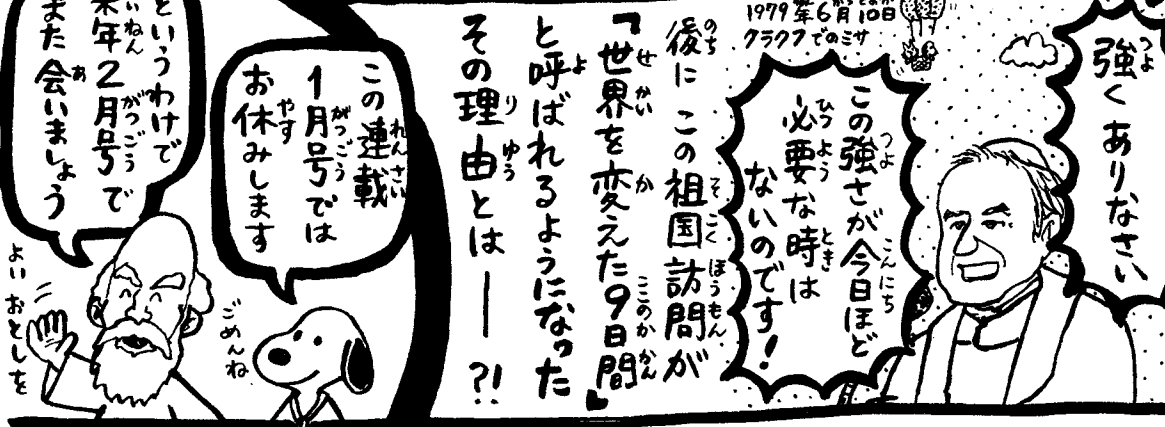 強く ありなさい
1979年6月10日
クラクフでのミサ
この強さが今日ほど
必要な時は
ないのです!
後に この祖国訪問が
「世界を変えた9日間」
と呼ばれるようになった
その理由とは——?!
この連載
1月号では
お休みします
ごめんね
というわけで
来年2月号で
また会いましょう
よいおとしを